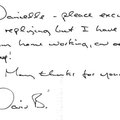 Danielle - please excu
replying, but I have
home working, an
!
Many thanks for you
David B.